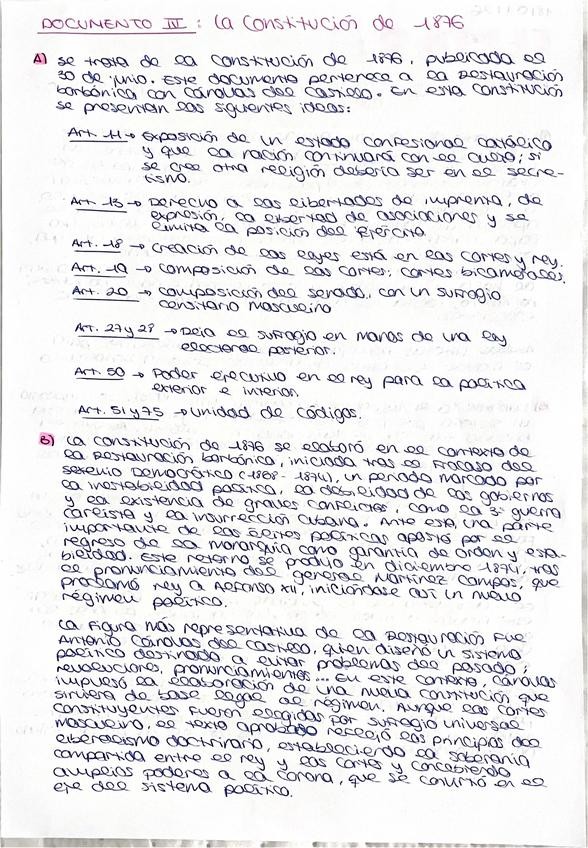 DOCUMENTO III : La Constitución de 1876
A) Se trata de la constitución de 1876, publicada el
30 de junio. Este documento pertenece a la Restauración
borbónica con Cánovas del Castillo. En esta constitución
se presentan las siguientes ideas:
Art. 11 → Exposición de un estado confesional católico
y que la nación continuará con el culto; si
se cree otra religión debería ser en el secre-
tismo.
Art. 13 → Derecho a las libertades de imprenta, de
expresión, la libertad de asociaciones y se
limita la posición del Ejército.
Art. 18 → Creación de las leyes está en las cortes y rey.
Art. 19 → Composición de las cortes: cortes bicamerales.
Art. 20 → Composición del senado, con un sufragio
censitario masculino
Art. 27 y 28 → Deja el sufragio en manos de una ley
electoral posterior.
Art. 50 → Poder ejecutivo en el rey para la política
exterior e interior.
Art. 51 y 75 → Unidad de códigos.
B) La Constitución de 1876 se elaboró en el contexto de
la Restauración borbónica, iniciada tras el fracaso del
Sexenio Democrático (1868-1874), un periodo marcado por
la inestabilidad política, la debilidad de los gobiernos
y la existencia de graves conflictos, como la 3ª guerra
carlista y la insurrección cubana. Ante esto, una parte
importante de las élites políticas apostó por el
regreso de la monarquía como garantía de orden y esta-
bilidad. Este retorno se produjo en diciembre 1874, tras
el pronunciamiento del general Martínez Campos, que
proclamó rey a Alfonso XII, iniciándose así un nuevo
régimen político.
La figura más representativa de la Restauración fue
Antonio Cánovas del Castillo, quien diseñó un sistema
político destinado a evitar problemas del pasado;
revoluciones, pronunciamientos... En este contexto, Cánovas
impulsó la elaboración de una nueva constitución que
sirviera de base legal al régimen. Aunque las Cortes
constituyentes fueron elegidas por sufragio universal
masculino, el texto aprobado recogió los principios del
liberalismo doctrinario, estableciendo la soberanía
compartida entre el rey y las cortes y concediendo
amplios poderes a la corona, que se convirtió en el
eje del sistema político.